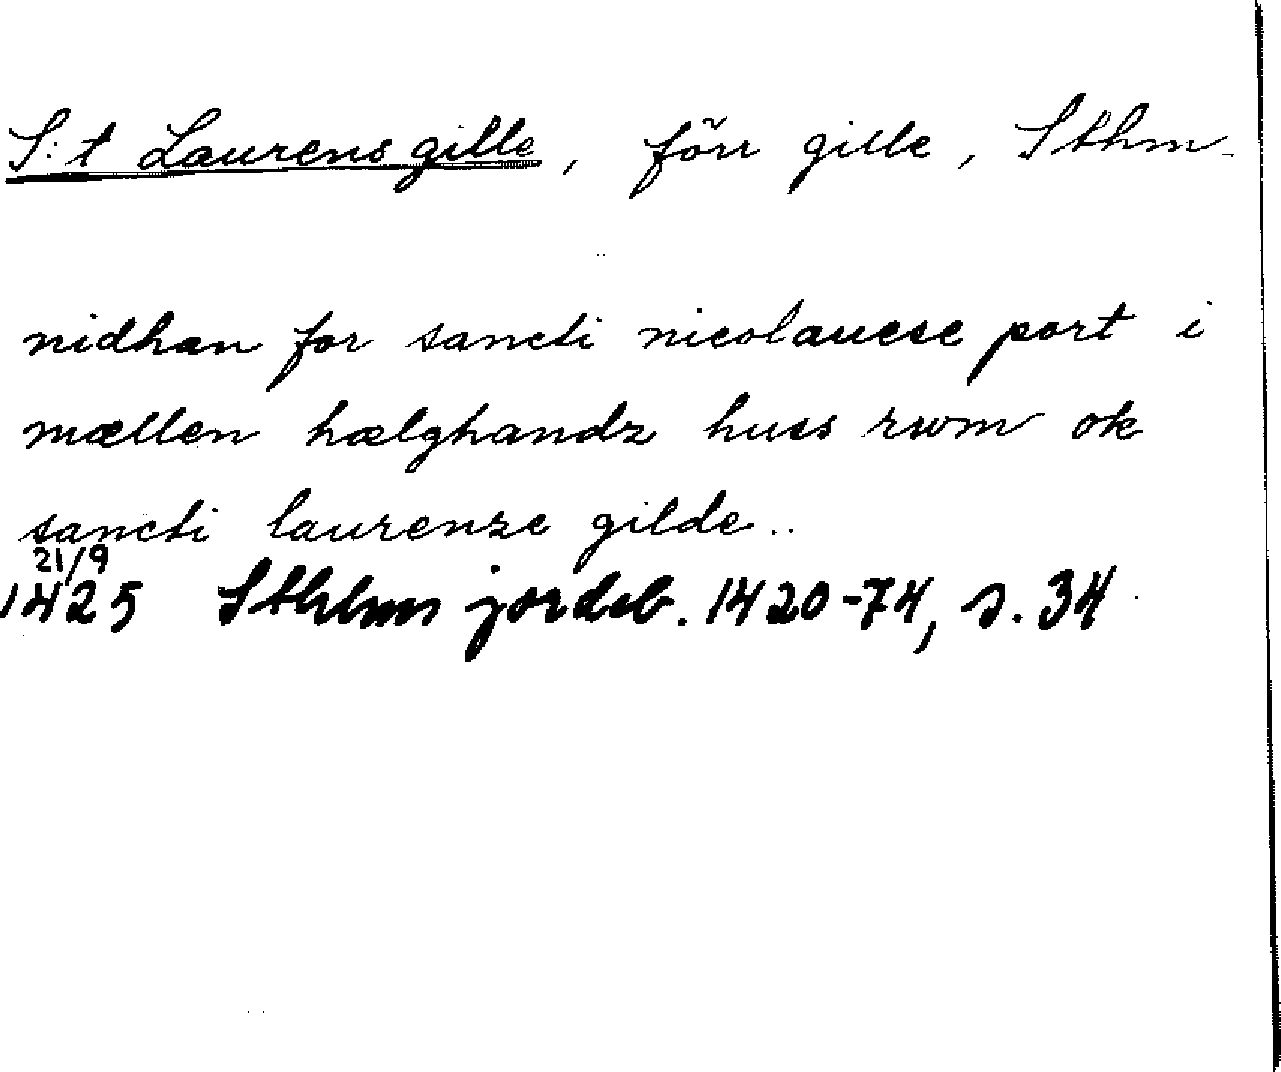 S:t Laurens gille, förr gille, Sthm
nidhan for sancti nicolauese port i
mællen hælghandz huss rwm ok
sancti laurense gilde..
21/9
1425 Sthlms jordeb. 1420-74, s. 34